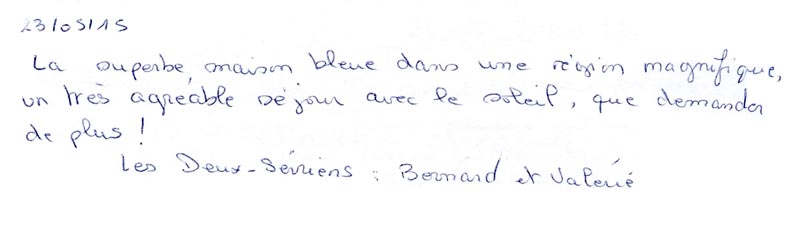 23/05/15
La superbe, maison bleue dans une région magnifique,
un très agréable séjour avec le soleil, que demander
de plus !
Les Deux-Sévriens : Bernard et Valérie